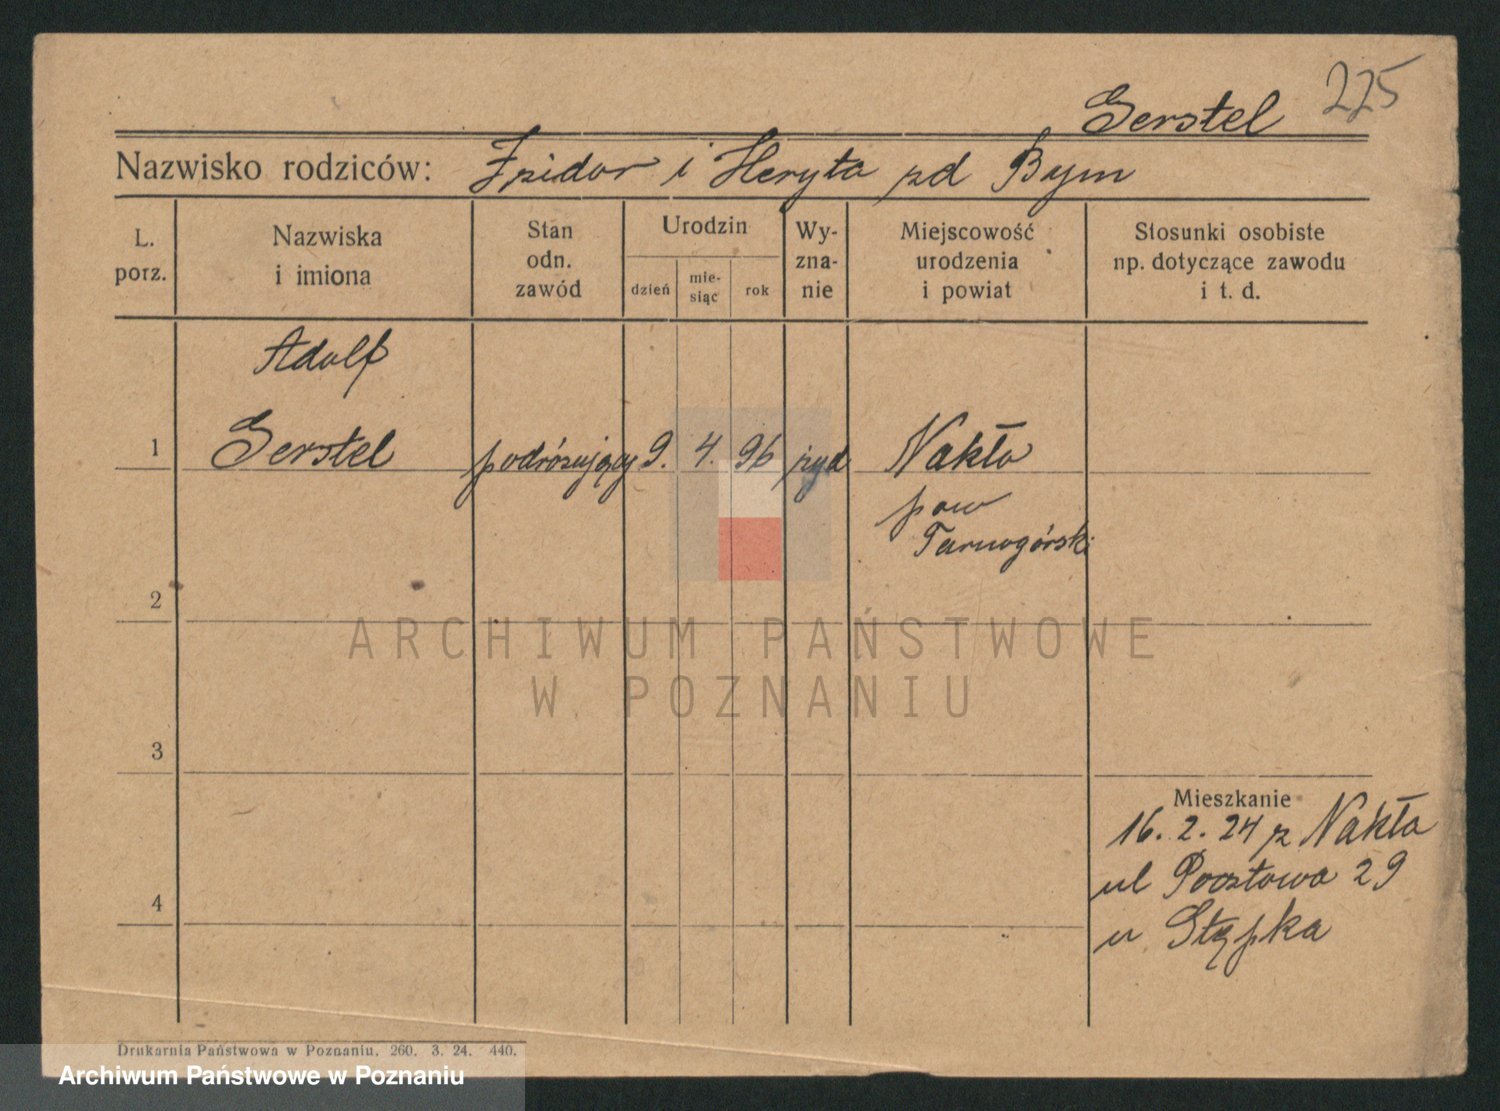 225
Gerstel
Nazwisko rodziców: Izidor i Heryta zd Bym
L. porz.
Nazwiska i imiona
Stan odn. zawód
Urodzin
dzień
mie- siąc
rok
Wy- zna- nie
Miejscowość urodzenia i powiat
Stosunki osobiste np. dotyczące zawodu i t. d.
Adolf
1 Gerstel podróżujący 9. 4. 96 żyd Nakło
pow
Tarnogórski
2
ARCHIWUM PAŃSTWOWE
W POZNANIU
3
Mieszkanie
16. 2. 24 z Nakła
ul Pocztowa 29
4
u Stępka
Drukarnia Państwowa w Poznaniu. 260. 3. 24. 440.
Archiwum Państwowe w Poznaniu